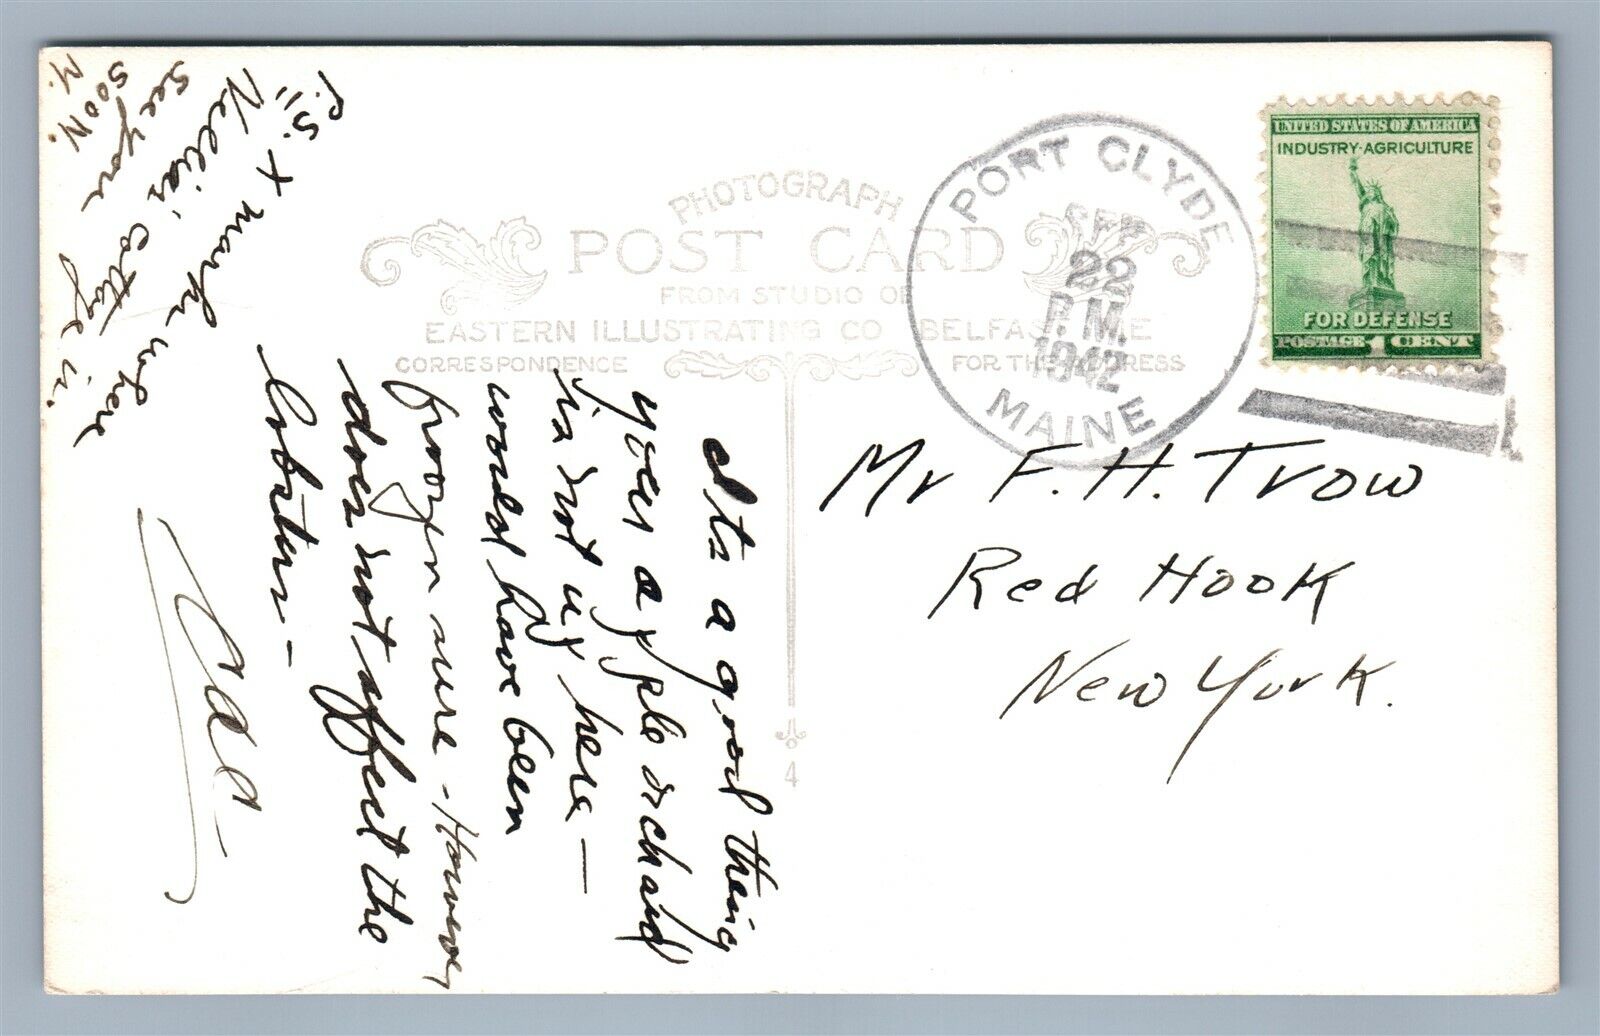 PHOTOGRAPH
POST CARD
FROM STUDIO OF
EASTERN ILLUSTRATING CO BELFAST, ME
CORRESPONDENCE
FOR THE ADDRESS
PORT CLYDE
SEP
22
P.M.
1942
MAINE
UNITED STATES OF AMERICA
INDUSTRY-AGRICULTURE
FOR DEFENSE
POSTAGE 1 CENT
Mr F. H. Trow
Red Hook
New York.
Its a good thing
your apple orchard
is not up here —
would have been
frozen sure - However
does not affect the
lobsters —
P.S. X marks where
Nellias' cottage is.
See you
soon.
M.
4